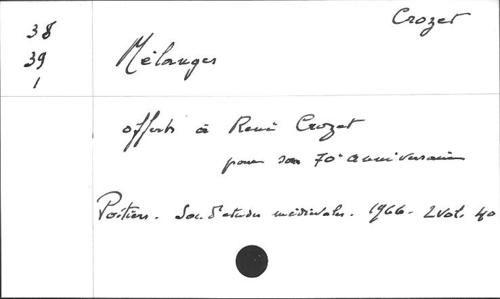 Crozet
38
39
1
Mélanges
offerts à René Crozet
pour son 70e anniversaire
Poitiers. Soc. d'études médiévales. 1966. 2 vol. 4o